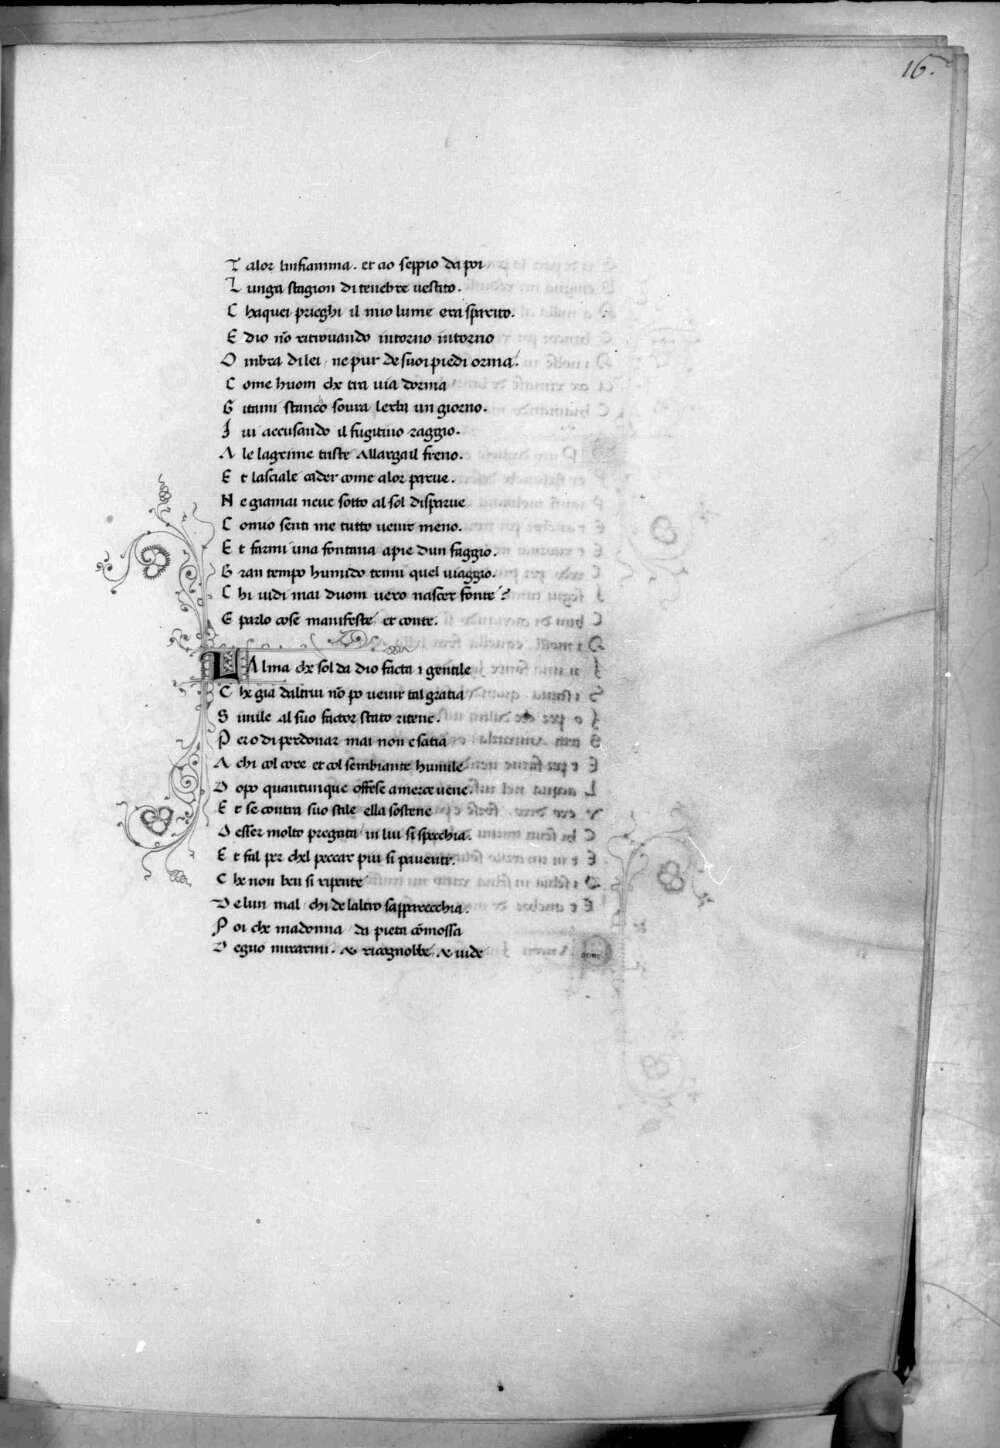 16.
T alor linfiamma. et cio seppio da poi
L unga stagion di tenebre uestito.
C haquei prieghi il mio lume era sparito.
E dio nō ritrouando intorno intorno
O mbra di lei, ne pur de suoi piedi orma.
C ome huom che tra uia dorma
G itaimi stanco soura lerba un giorno.
I ui accusando il fugitiuo raggio.
A le lagrime triste Allargail freno.
E t lasciale cader come alor parue.
N e giamai neue sotto al sol disparue
C omio senti me tutto uenir meno.
E t farmi una fontana apie dun faggio.
G ran tempo humido tenni quel uiaggio.
C hi uidi mai duom uero nascer fonte?
E parlo cose manifeste et conte.
L Alma che sol da dio facta i gentile
C he gia daltrui nō po uenir tal gratia
S imile al suo factor stato ritene.
P ero di perdonar mai non e satia
A chi col core et col sembiante humile
D opo quantunque offese amerce uene.
E t se contra suo stile ella sostene
D esser molto pregata in lui si specchia.
E t fal per chel peccar piu si pauente.
C he non ben si ripente
D elun mal chi de laltro sapparecchia.
P oi che madonna da pieta cōmossa
D egno mirarmi. & ricognobbe, & uide